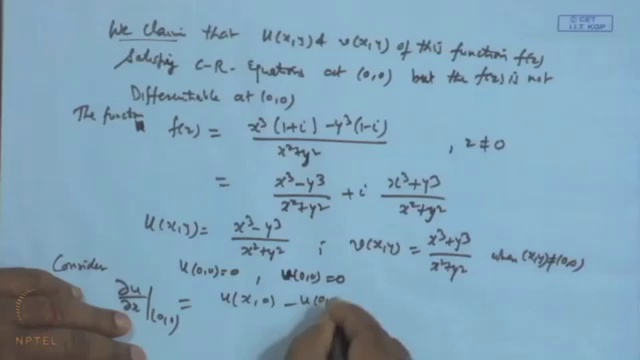 © CET
I.I.T. KGP
We claim that u(x,y) & v(x,y) of this function f(z)
Satisfying C-R- Equations at (0,0) but the f(z) is not
Differentiable at (0,0)
The function f(z) = x³(1+i) - y³(1-i) / x²+y² , z ≠ 0
= x³-y3 / x²+y² + i x³+y3 / x²+y²
u(x,y) = x³-y3 / x²+y² ; v(x,y) = x³+y3 / x²+y² when (x,y)≠(0,0)
Consider u(0,0)=0 , v(0,0)=0
∂u/∂x |(0,0) = u(x,0) - u(0,
NPTEL